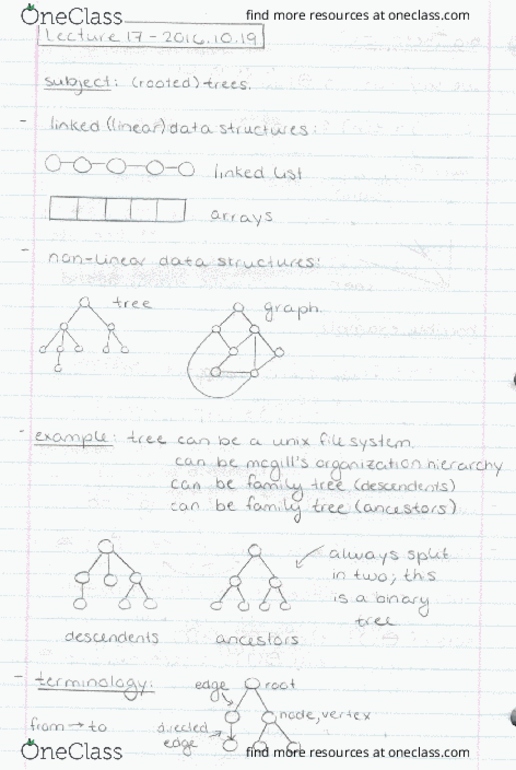 OneClass find more resources at oneclass.com
Lecture 17 - 2016.10.19
subject: (rooted) trees.
- linked (linear) data structures:
linked list
arrays
- non-linear data structures:
tree graph.
- example: tree can be a unix file system.
can be mcgill's organization hierarchy
can be family tree (descendents)
can be family tree (ancestors)
always split
in two; this
is a binary
tree
descendents ancestors
- terminology: edge root
node, vertex
from → to directed
edge
OneClass find more resources at oneclass.com